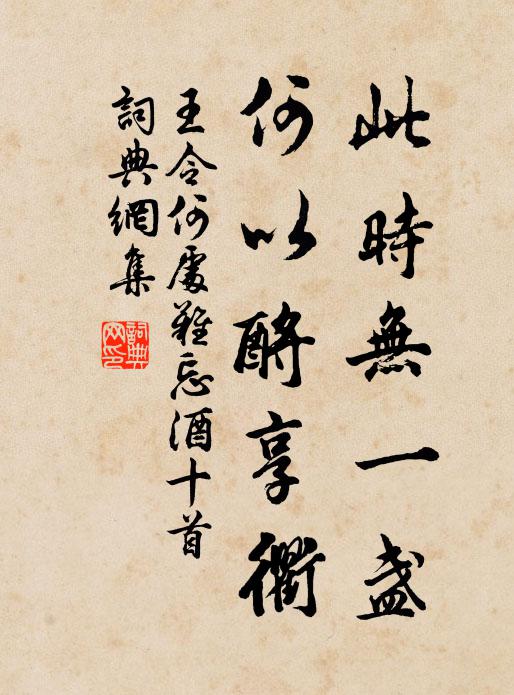 此時無一盞
何以酹享衢
王令何處難忘酒十首
詞典網集
詞典網印